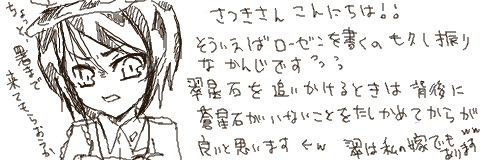 さつきさん こんにちは!!
そういえばローゼンを書くのも久し振り
なかんじですっっっ
翠星石を追いかけるときは背後に
蒼星石がいないことをたしかめてからが
良いと思います←w
翠は私の嫁でもあります ww
ちょっと署まで
来てもらおうか